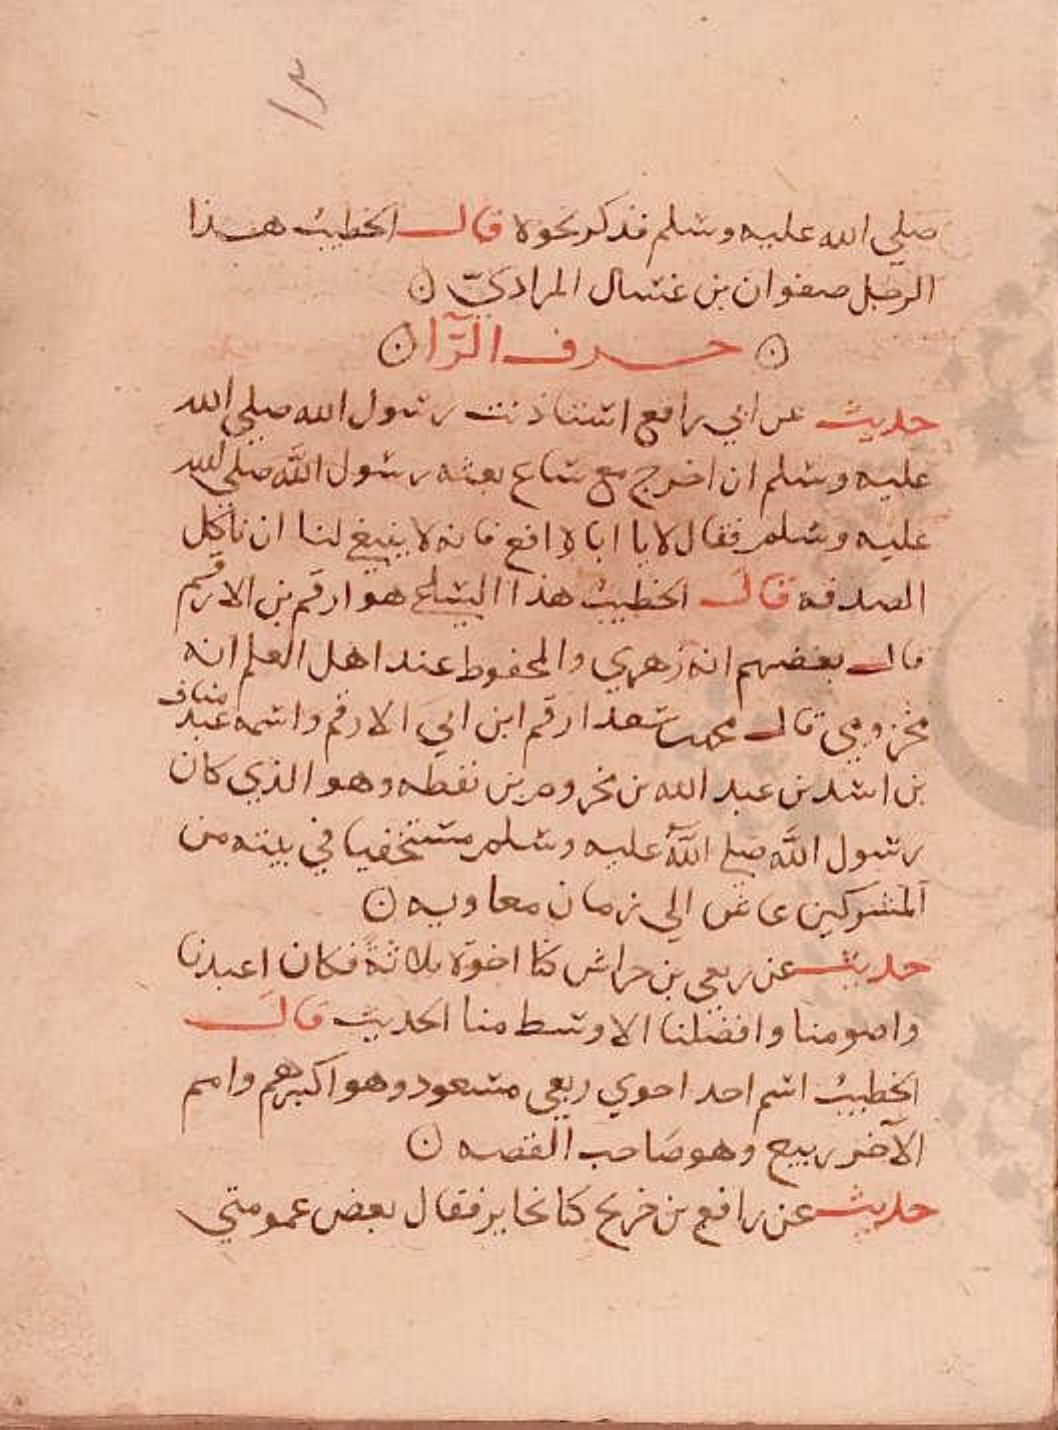 ١٣
صلي الله عليه وسلم فذكر نحوه قال الخطيب هذا
الرجل صفوان بن عسال المرادي
حرف الرآ
حديث عن ابي رافع استاذنت رسول الله صلي الله
عليه وسلم ان اخرج مع ساع بعثه رسول الله صلي الله
عليه وسلم فقال لا يا ابا رافع فانه لا ينبغي لنا ان ناكل
الصدقه قال الخطيب هذا هو ارقم بن الارقم
قال بعضهم انه زهري والمحفوظ عند اهل العلم انه
مخزومي قال محمد سعد ارقم ابن ابي الارقم واسمه عبد مناف
بن اسد بن عبد الله بن مخزوم بن نقطه وهو الذي كان
رسول الله صلي الله عليه وسلم مستخفيا في بيته من
المشركين عاش الي زمان معاويه
حديث عن ربعي بن حراش كنا اخوة ثلاثة فكان اعبدنا
واصومنا وافضلنا الاوسط منا الحديث قال
الخطيب اسم احد اخوي ربعي مسعود وهو اكبرهم واسم
الآخر ربيع وهو صاحب القصه
حديث عن رافع بن خديج كنا نخابر فقال بعض عمومتي